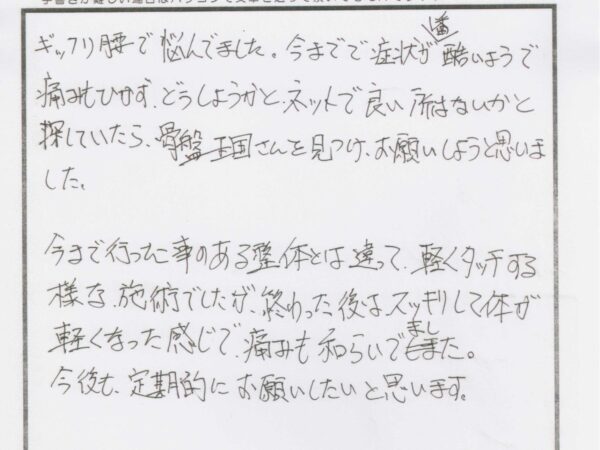 ギックリ腰で悩んでました。今までで症状が一番酷いようで
痛みもひかず、どうしようかと、ネットで良い所はないかと
探していたら、骨盤王国さんを見つけ、お願いしようと思いま
した。
今まで行った事のある整体とは違って、軽くタッチする
様な、施術でしたが、終わった後は、スッキリして体が
軽くなった感じで、痛みも和らいでました。
今後も、定期的にお願いしたいと思います。